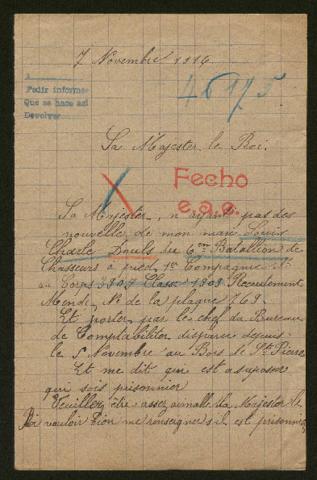 7 Novembre 1916
A
Pedir informe
Que se hace así
Devolver
46175
Sa Majester le Roi.
Fecho
Sa Majester, n'ayant pas des
nouvelle de mon mari Louis
Charle Douls du 6em Batallion de
Chasseurs à pied, 1re Compagnie No
au Corps Classe 1903 Recrutement
Mende, No de la plaque 769.
Et porter pas le chef du Bureau
de Comptabiliter disparu depuis
le 5 Novembre au Bois de St Pierre
Et me dit qui est a suposer
qui sois prisonnier
Veuillez être assez aimable Sa Majester le
Roi vouloir bien me renseigner s'il est prisonnier